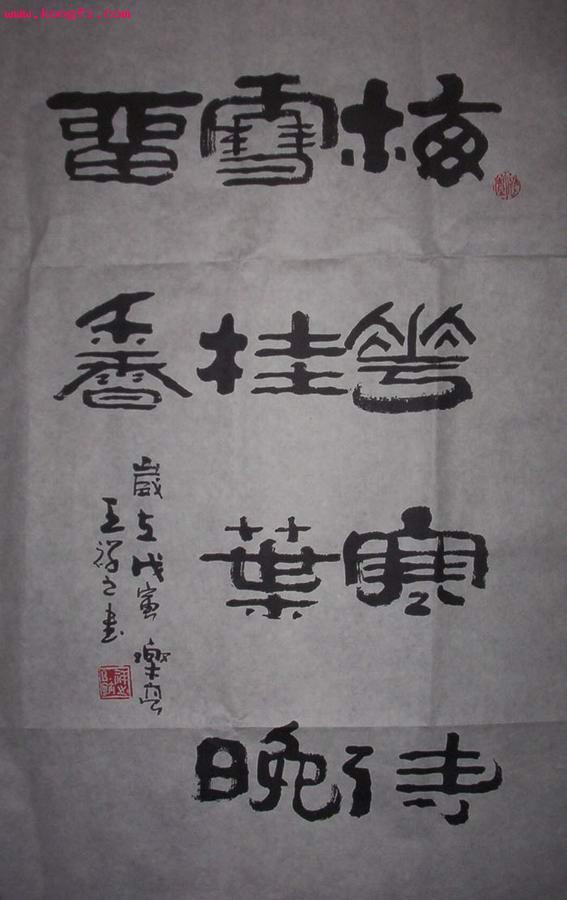 www.kongfz.com
梅華寒待
雪桂葉晚
畱香
歲在戊寅
王祥之書